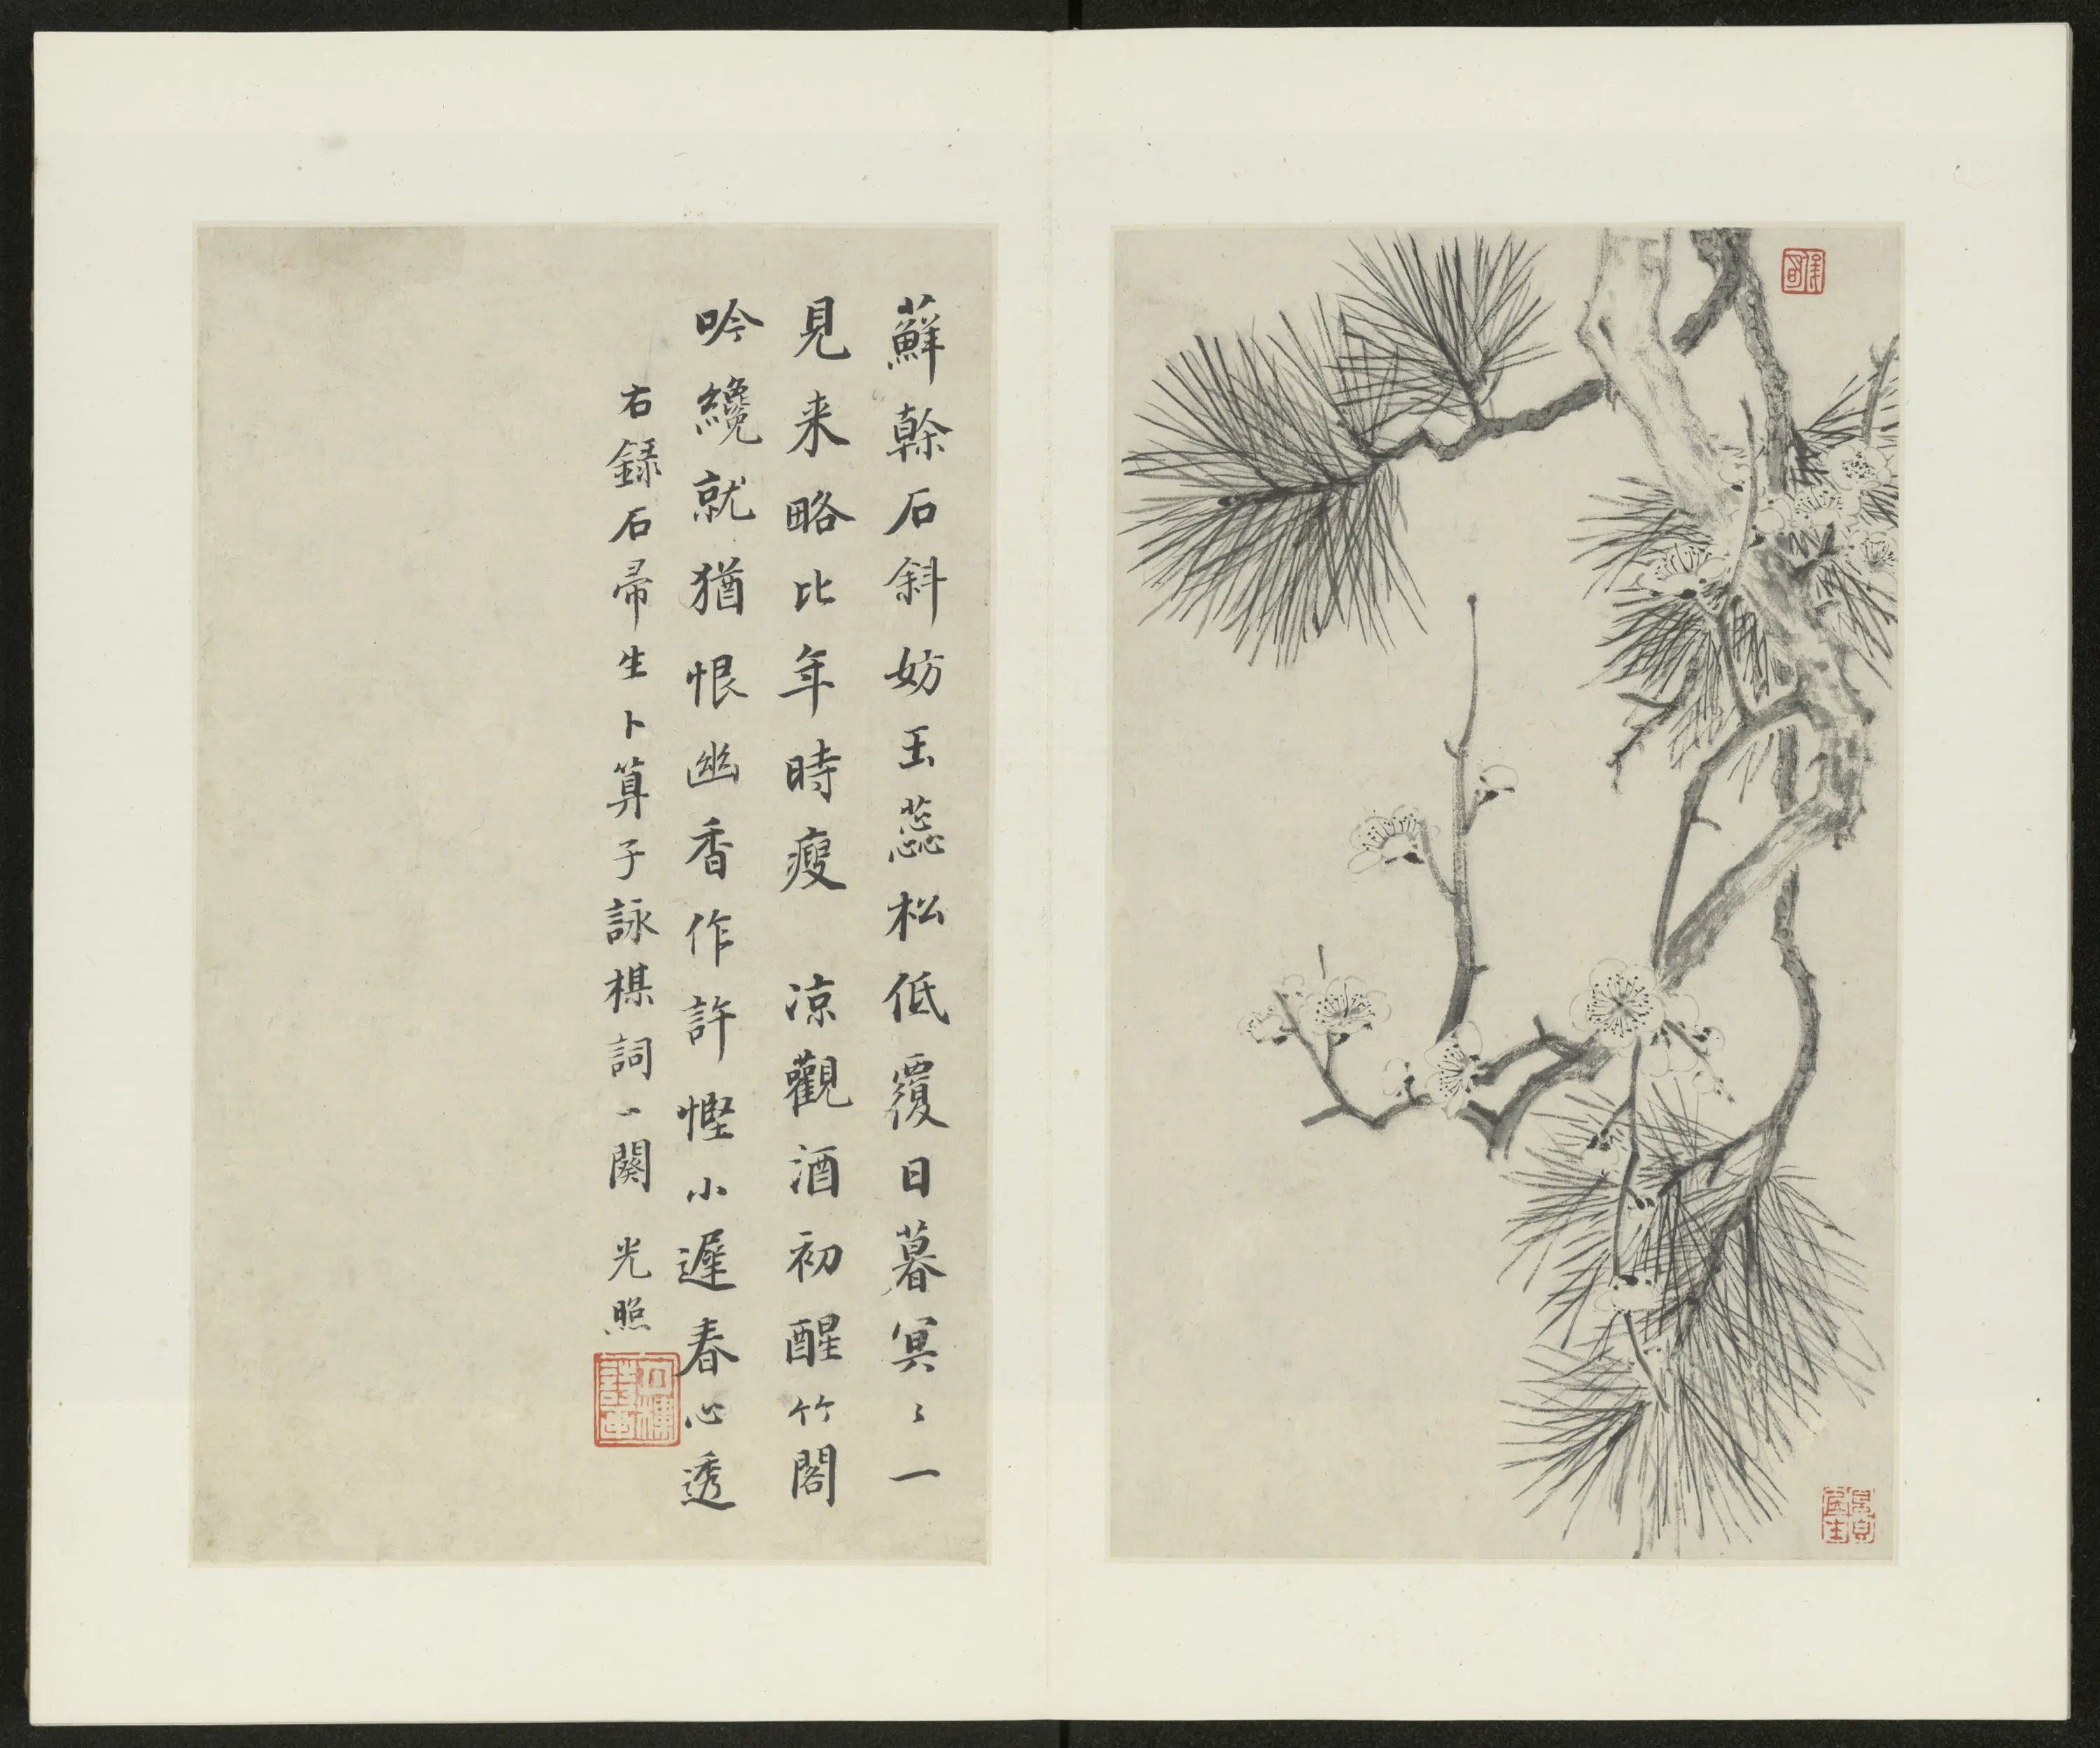 蘚榦石斜妨玉蕊松低覆日暮冥〻一
見来略比年時瘦　凉觀酒初醒竹閣
吟纔就猶恨幽香作許慳小遲春心透
右錄石帚生卜算子詠楳詞一闋　光照